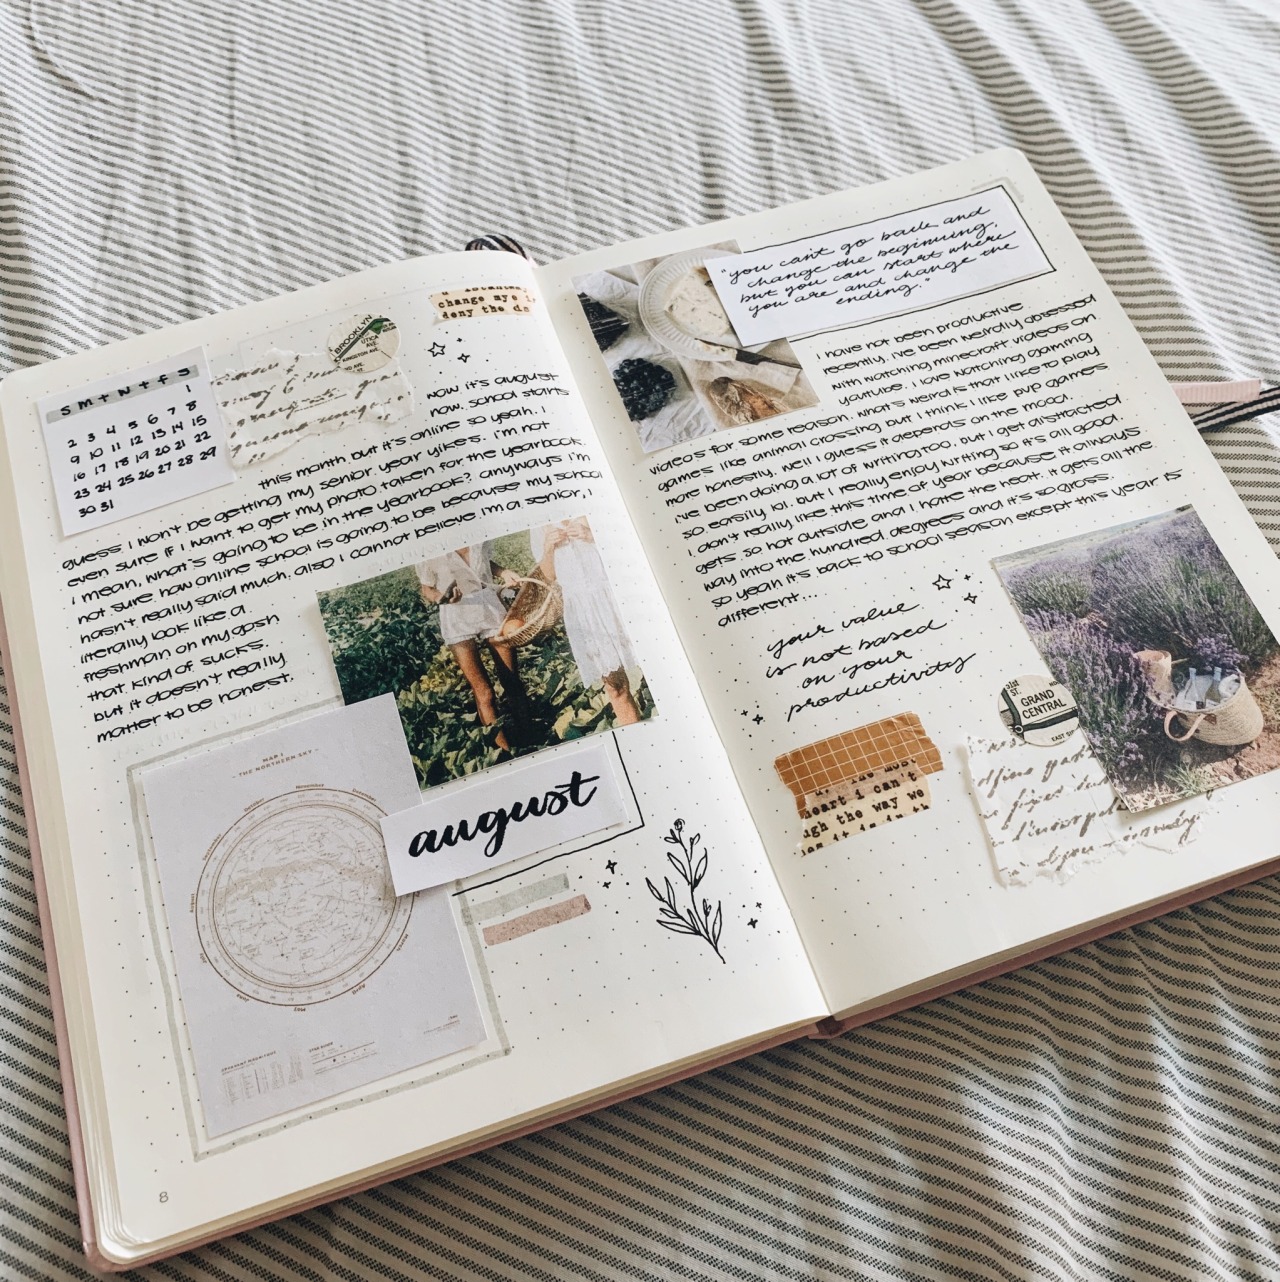 S M T W T F S
1
2 3 4 5 6 7 8
9 10 11 12 13 14 15
16 17 18 19 20 21 22
23 24 25 26 27 28 29
30 31
BROOKLYN
UTICA
AVE.
KINGSTON AVE.
change mye
deny the
wow it's august
now. school starts
this month but it's online so yeah. I
guess I won't be getting my senior year yikes. I'm not
even sure if I want to get my photo taken for the yearbook.
I mean, what's going to be in the yearbook?. anyways I'm
not sure how online school is going to be because my school
hasn't really said much. also I cannot believe I'm a senior, I
literally look like a
freshman oh my gosh
that kind of sucks.
but it doesn't really
matter to be honest.
MAP I
THE NORTHERN SKY
august
8
"you can't go back and
change the beginning,
but you can start where
you are and change the
ending."
I have not been productive
recently. I've been weirdly obsessed
with watching minecraft videos on
youtube. I love watching gaming
videos for some reason. what's weird is that I like to play
games like animal crossing but I think I like pvp games
more honestly. well I guess it depends on the mood.
I've been doing a lot of writing too. but I get distracted
so easily lol. but I really enjoy writing so it's all good!
I don't really like this time of year because it always
gets so hot outside and I hate the heat. it gets all the
way into the hundred degrees and it's so gross.
so yeah it's back to school season except this year is
different...
your value
is not based
on your
productivity
ST.
GRAND
CENTRAL
EAST
heart i can't
the way we